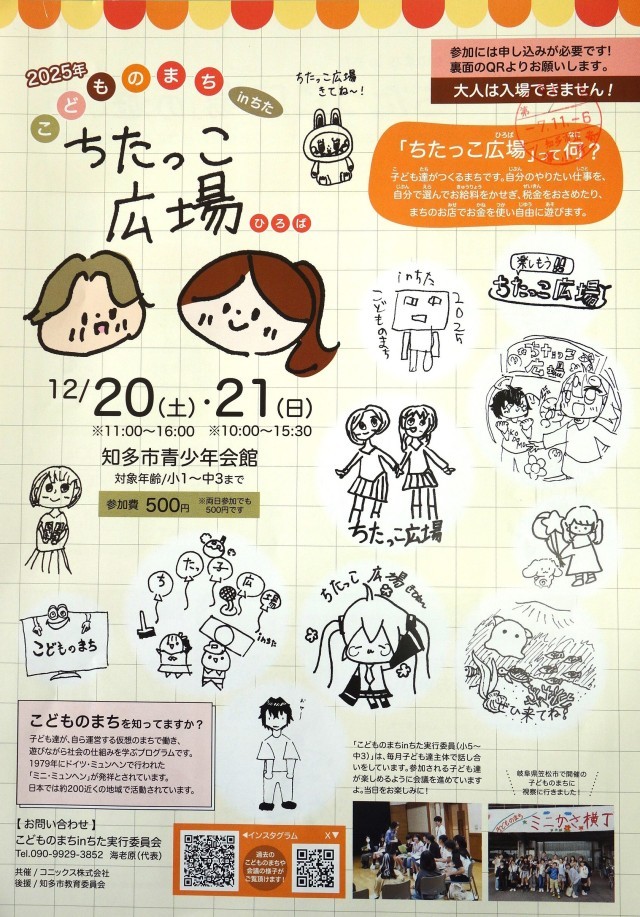 参加には申し込みが必要です!
裏面のQRよりお願いします。
大人は入場できません!
2025年
こどものまち
inちた
ちたっこ
広場
ひろば
ちたっこ広場
きてね〜!
「ちたっこ広場」って何?
子ども達がつくるまちです。自分のやりたい仕事を、
自分で選んでお給料をかせぎ、税金をおさめたり、
まちのお店でお金を使い自由に遊びます。
inちた
こどものまち
2025
楽しもう
ちたっこ広場
ちたっこ
広場
12/20(土)・21(日)
※11:00〜16:00 ※10:00〜15:30
知多市青少年会館
対象年齢/小1〜中3まで
参加費 500円 ※両日参加でも
500円です
ちたっこ広場
ちたっ子広場
inちた
こどものまち
ちたっこ広場
ぜひ来てね!
こどものまちを知ってますか?
子ども達が、自ら運営する仮想のまちで働き、
遊びながら社会の仕組みを学ぶプログラムです。
1979年にドイツ・ミュンヘンで行われた
「ミニ・ミュンヘン」が発祥とされています。
日本では約200近くの地域で活動されています。
「こどものまちinちた実行委員(小5〜
中3)」は、毎月子ども達主体で話し合
いをしています。参加される子ども達
が楽しめるように会議を進めています
よ。当日をお楽しみに!
岐阜県笠松市で開催の
子どものまちに
視察に行きました!
こどものまち
ミニかさ横丁
【お問い合わせ】
こどものまちinちた実行委員会
Tel.090-9929-3852 海老原(代表)
共催 / コニックス株式会社
後援 / 知多市教育委員会
◀インスタグラム
X▼
過去の
こどものまちや
会議の様子が
ご覧頂けます!